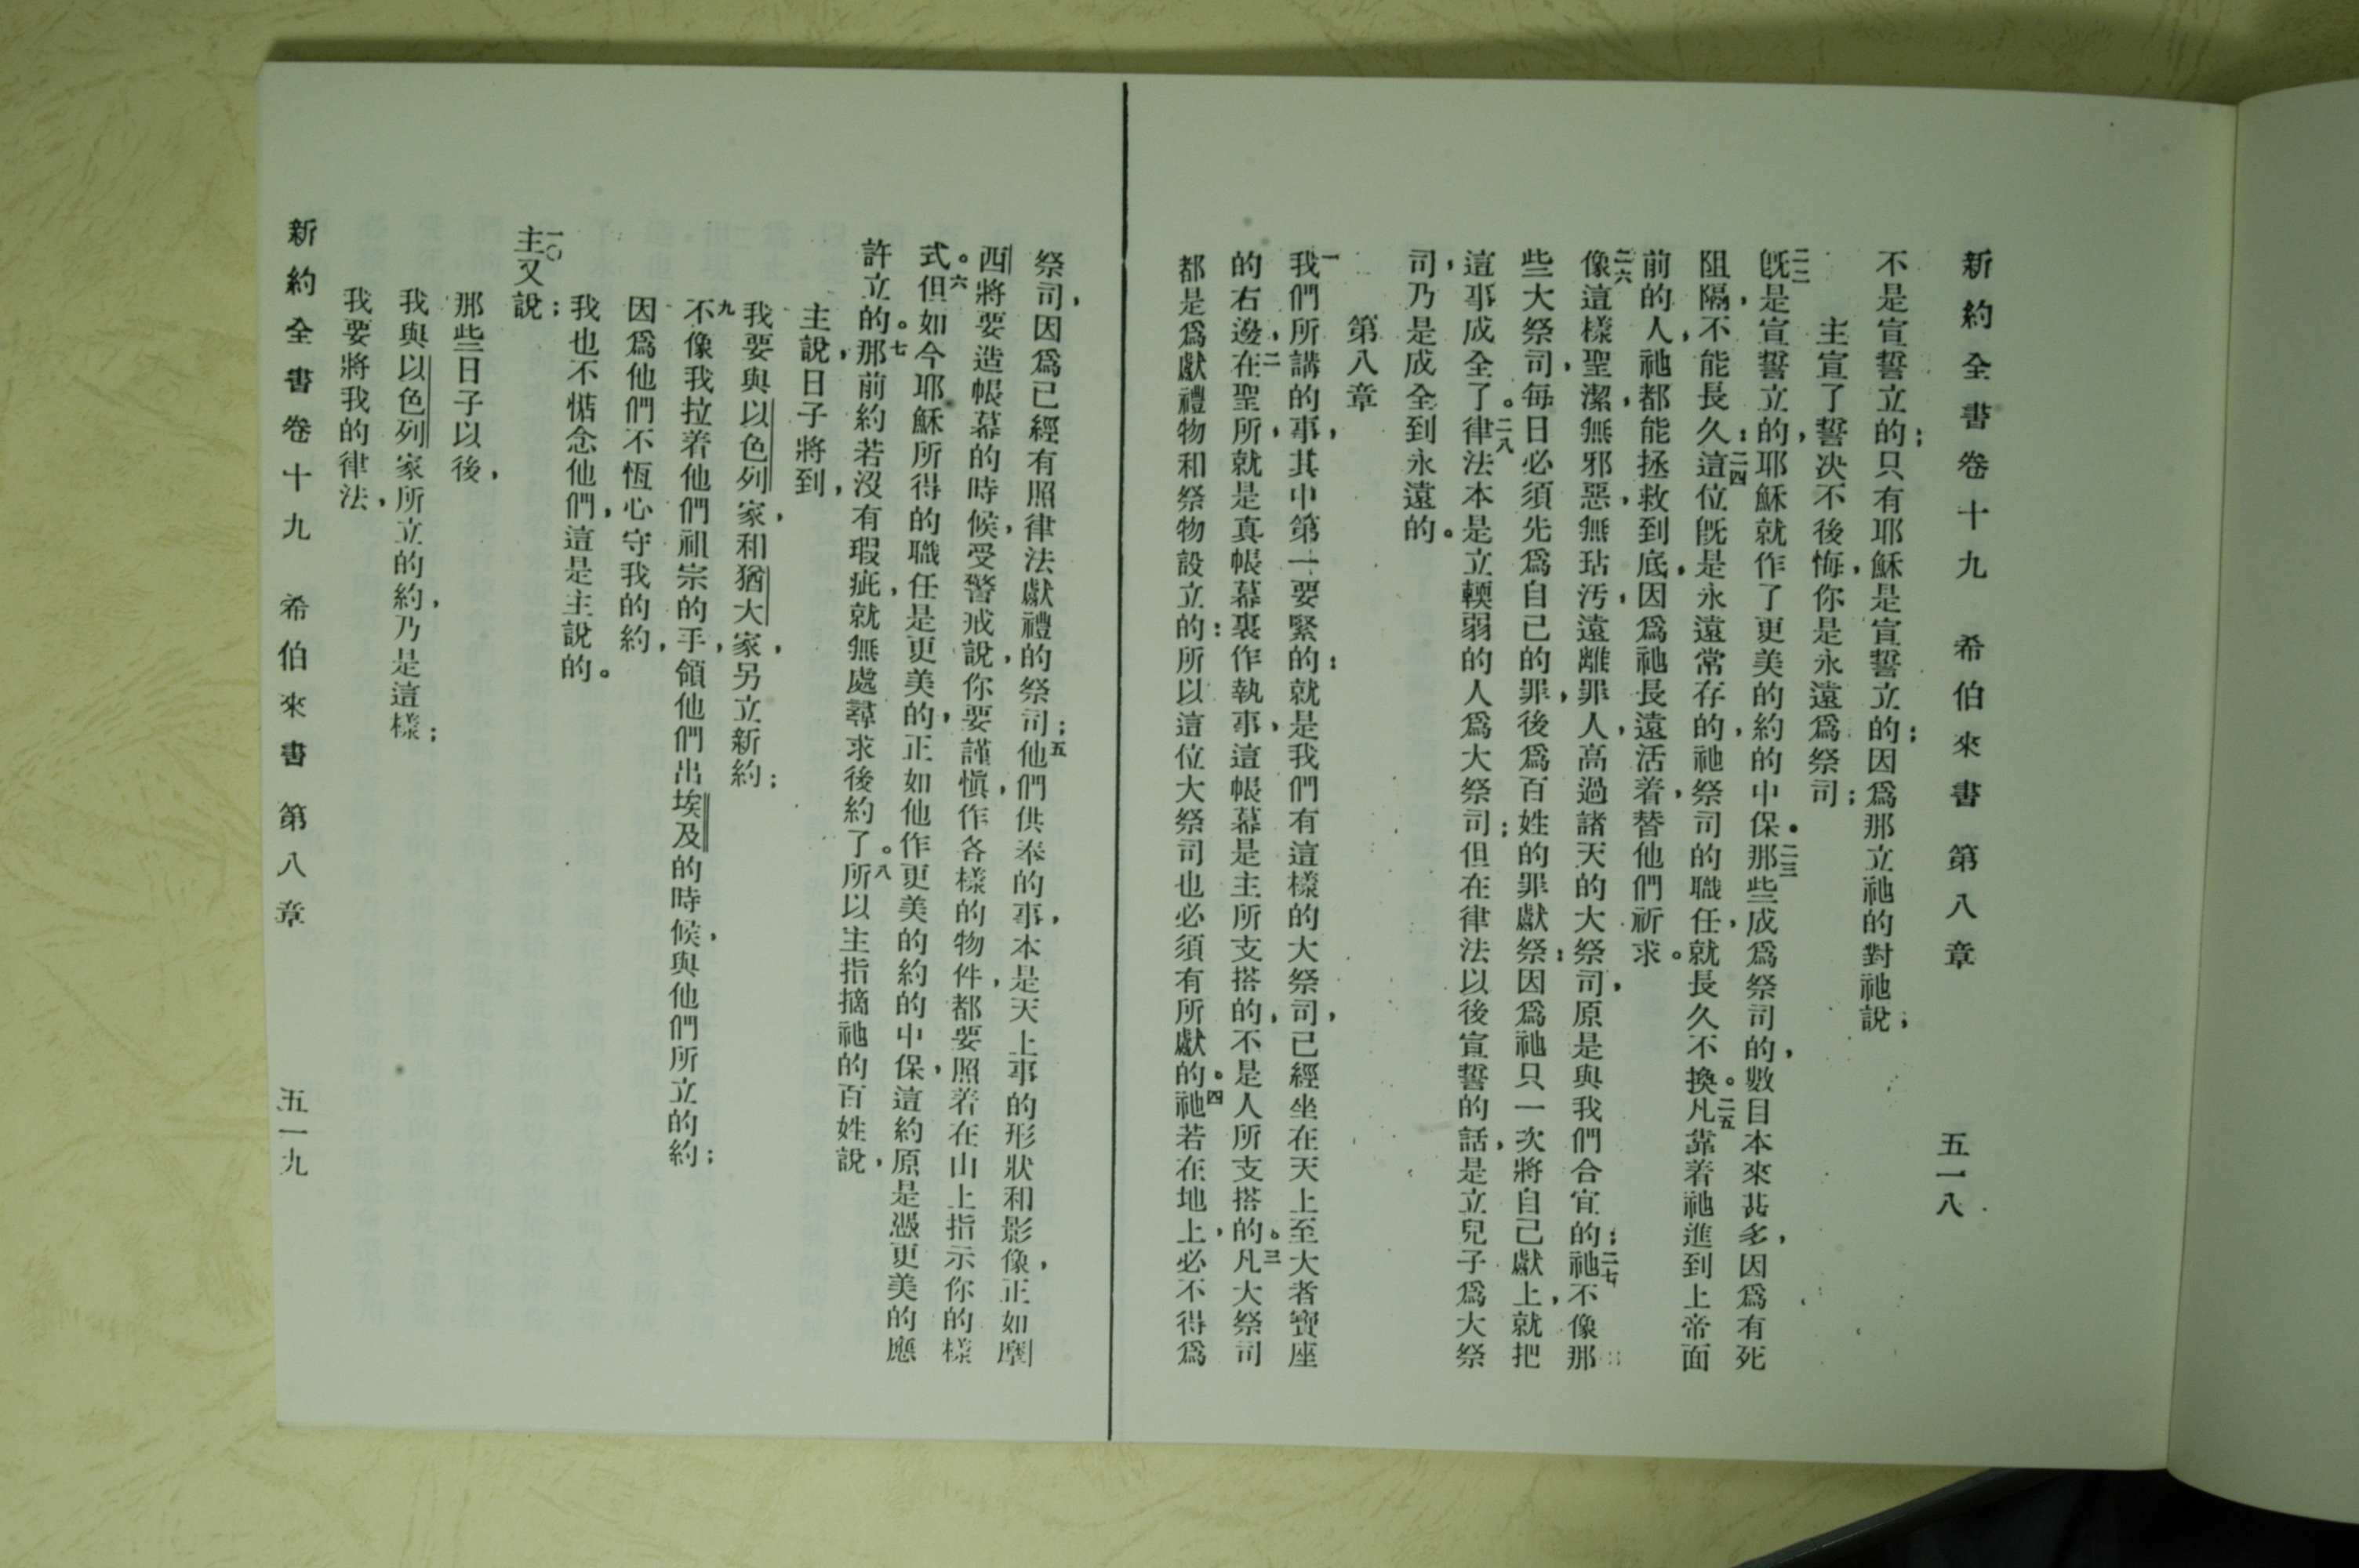 新約全書卷十九　希伯來書　第八章　五一八
不是宣誓立的；只有耶穌是宣誓立的；因爲那立祂的對祂說，
主宣了誓決不後悔，你是永遠爲祭司；
二二旣是宣誓立的，耶穌就作了更美的約的中保。二三那些成爲祭司的，數目本來甚多，因爲有死
阻隔，不能長久：二四這位旣是永遠常存的，祂祭司的職任，就長久不換。二五凡靠着祂進到上帝面
前的人，祂都能拯救到底，因爲祂長遠活着，替他們祈求。
二六像這樣聖潔，無邪惡，無玷汚，遠離罪人，高過諸天的大祭司，原是與我們合宜的；二七祂不像那
些大祭司，每日必須先爲自己的罪，後爲百姓的罪獻祭：因爲祂只一次將自己獻上，就把
這事成全了。二八律法本是立輭弱的人爲大祭司；但在律法以後宣誓的話，是立兒子爲大祭
司，乃是成全到永遠的。
第八章
一我們所講的事，其中第一要緊的：就是我們有這樣的大祭司，已經坐在天上至大者寶座
的右邊，二在聖所，就是真帳幕裏作執事，這帳幕是主所支搭的，不是人所支搭的。三凡大祭司
都是爲獻禮物和祭物設立的：所以這位大祭司也必須有所獻的。四祂若在地上，必不得爲
祭司，因爲已經有照律法獻禮的祭司；五他們供奉的事，本是天上事的形狀和影像，正如摩
西將要造帳幕的時候，受警戒說，你要謹愼，作各樣的物件，都要照着在山上指示你的樣
式。六但如今耶穌所得的職任是更美的，正如他作更美的約的中保，這約原是憑更美的應
許立的。七那前約若沒有瑕疵，就無處尋求後約了。八所以主指摘祂的百姓說，
主說，日子將到，
我要與以色列家，和猶大家，另立新約；
九不像我拉着他們祖宗的手，領他們出埃及的時候，與他們所立的約；
因爲他們不恆心守我的約，
我也不惦念他們，這是主說的。
一〇主又說；
那些日子以後，
我與以色列家所立的約，乃是這樣；
我要將我的律法，
新約全書卷十九　希伯來書　第八章　五一九